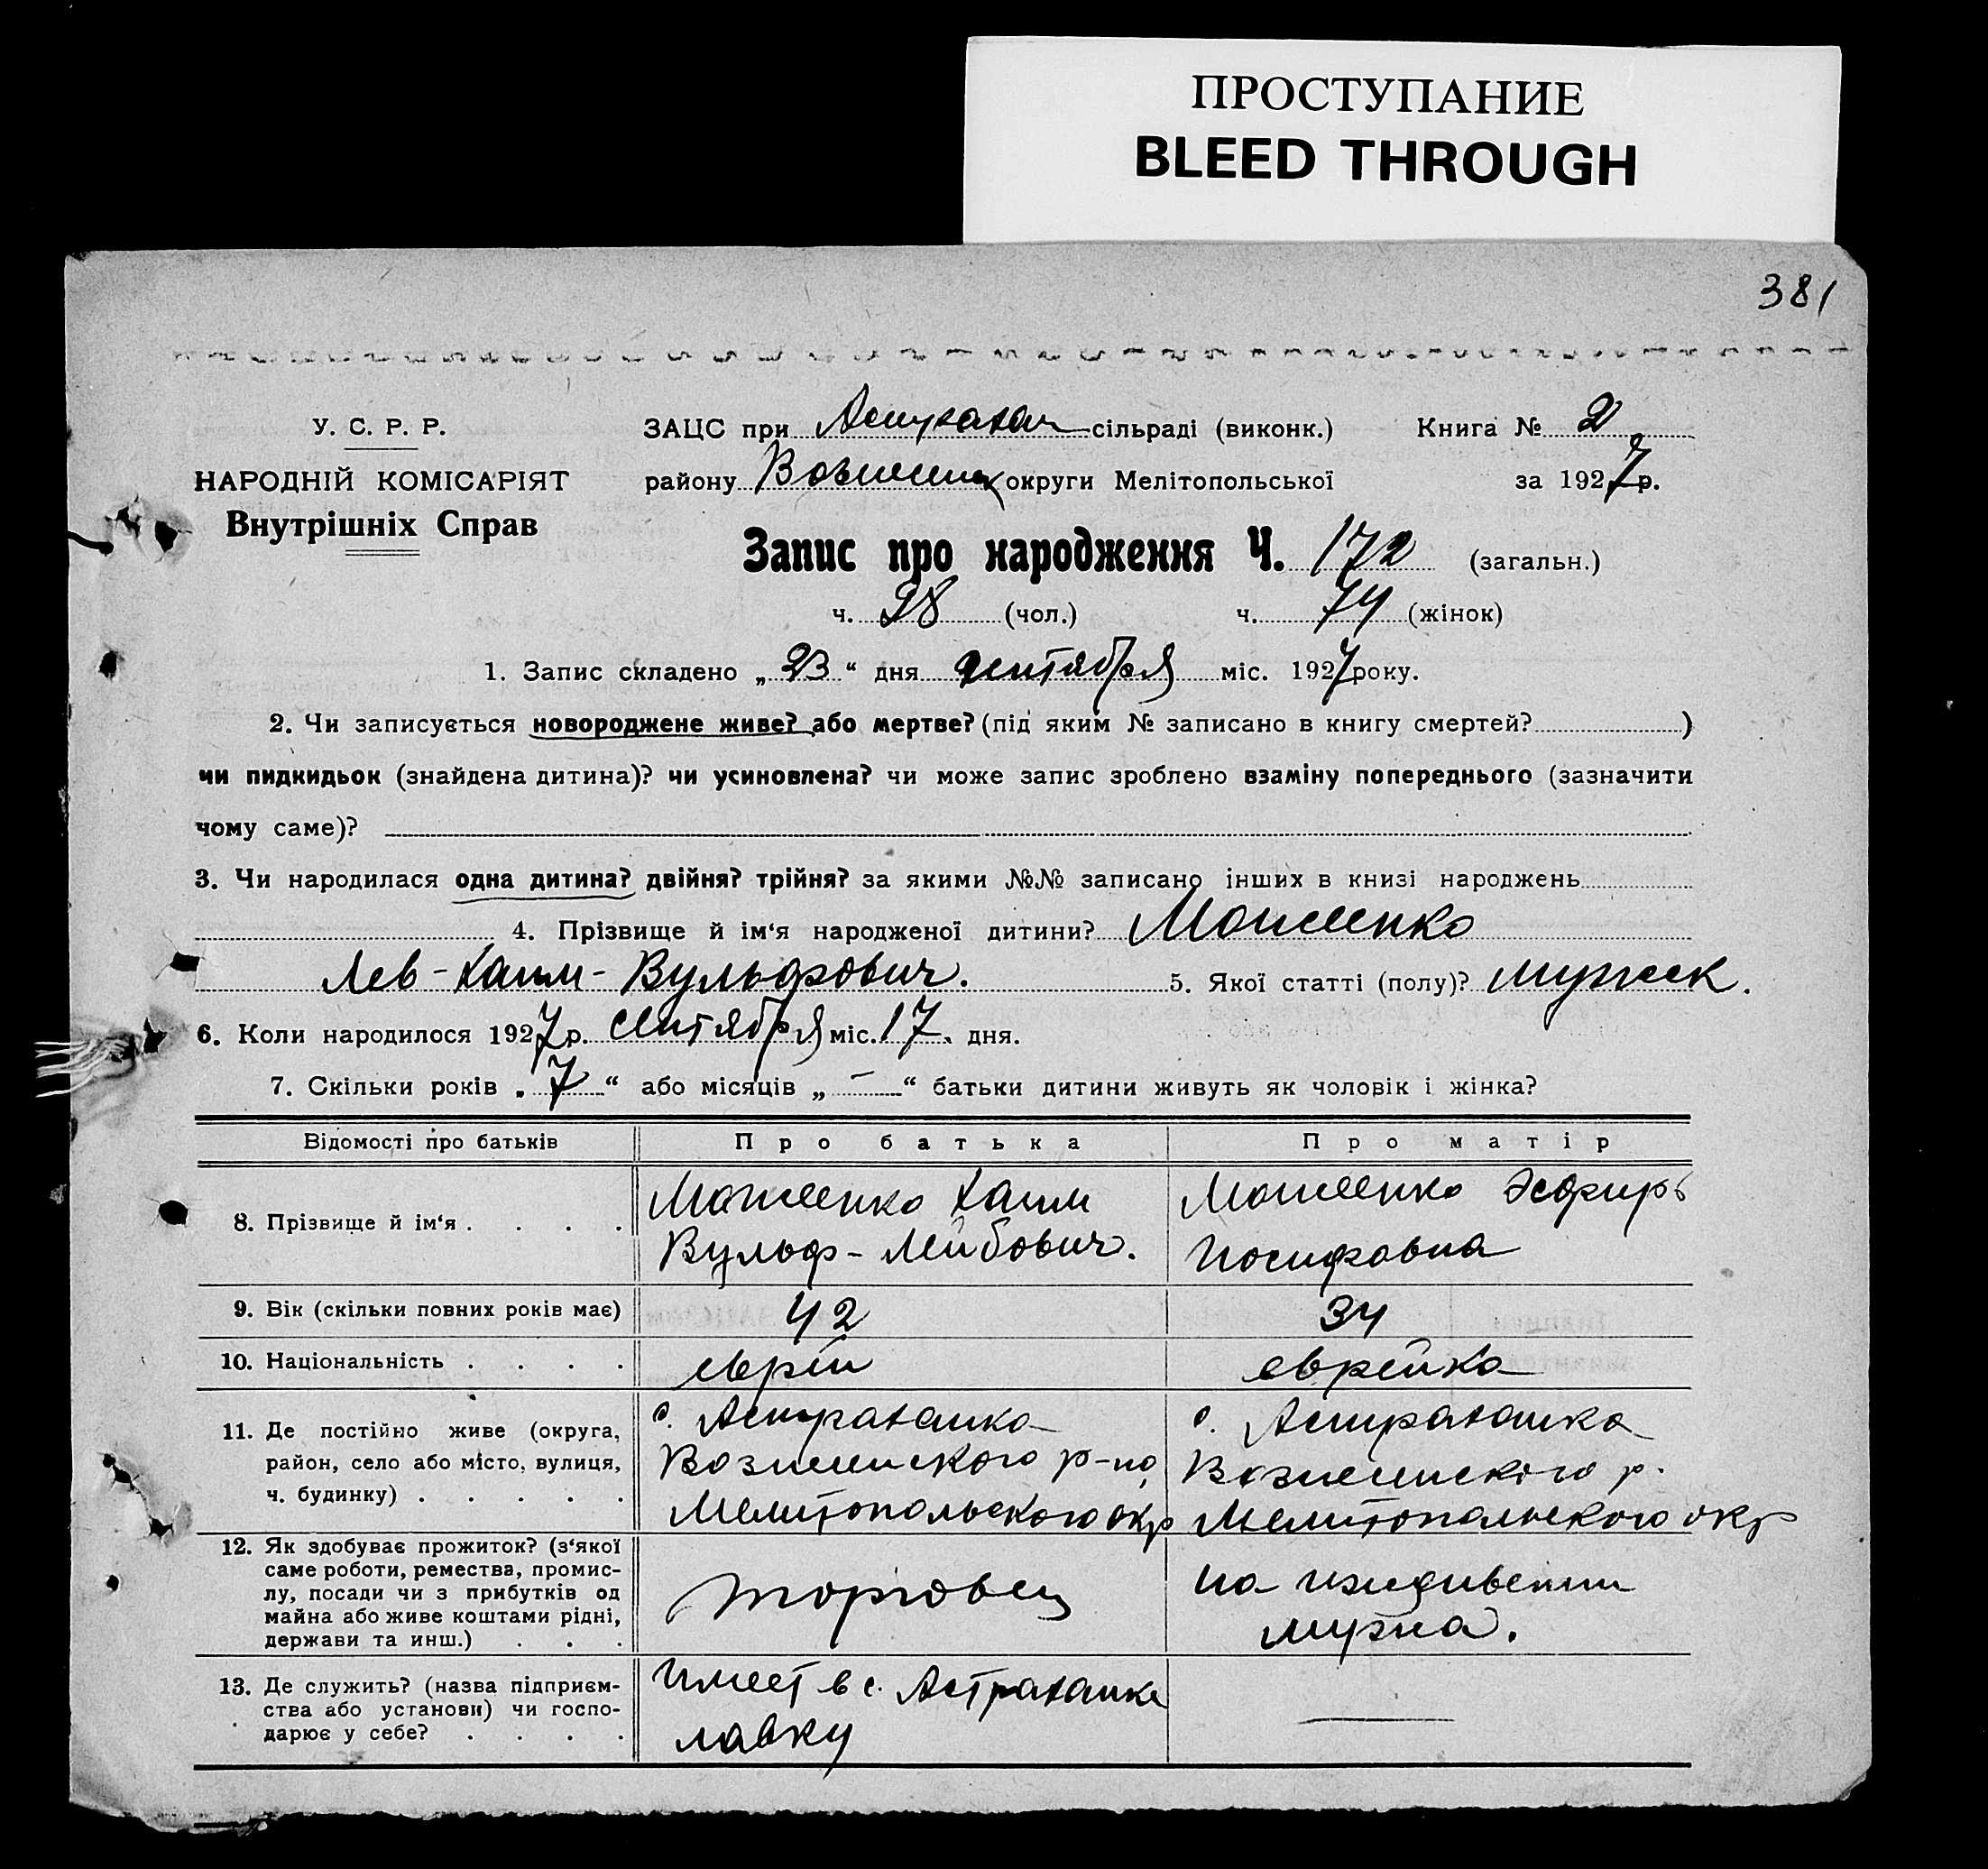 ПРОСТУПАНИЕ
BLEED THROUGH
381
У. С. Р. Р.
НАРОДНІЙ КОМІСАРІЯТ
Внутрішніх Справ
ЗАЦС при Астрахан сільраді (виконк.) Книга № 2
району округи Мелітопольської за 1927 р.
Запис про народження Ч. 172 (загальн.)
ч. 98 (чол.) ч. 74 (жінок)
1. Запис складено „ 23 “ дня сентября міс. 1927 року.
2. Чи записується новороджене живе? або мертве? (під яким № записано в книгу смертей? )
чи пидкидьок (знайдена дитина)? чи усиновлена? чи може запис зроблено взаміну попереднього (зазначити
чому саме)?
3. Чи народилася одна дитина? двійня? трійня? за якими №№ записано інших в книзі народжень
4. Прізвище й ім‘я народженої дитини? Можеенко
Лев-Хаим-Вульфович. 5. Якої статті (полу)? мужск.
6. Коли народилося 1927 р. сентября міс. 17. дня.
7. Скільки років „ 7 “ або місяців „ — “ батьки дитини живуть як чоловік і жінка?
Відомості про батьків Про батька Про матір
8. Прізвище й ім‘я . . . . Можеенко Хаим Вульф-Лейбович. Можеенко Эсфирь Иосифовна
9. Вік (скільки повних років має) 42 34
10. Національність . . . . еврей еврейка
11. Де постійно живе (округа, район, село або місто, вулиця, ч. будинку) . . . . .
с. Астраханка с. Астраханка
Вознесенского р-на Вознесенского р.
Мелитопольского окр Мелитопольского окр
12. Як здобуває прожиток? (з‘якої саме роботи, ремества, промислу, посади чи з прибутків од майна або живе коштами рідні, держави та инш.) . . .
торговец на иждивении мужа.
13. Де служить? (назва підприємства або установи) чи господарює у себе? . . . .
Имеет в с. Астраханке лавку